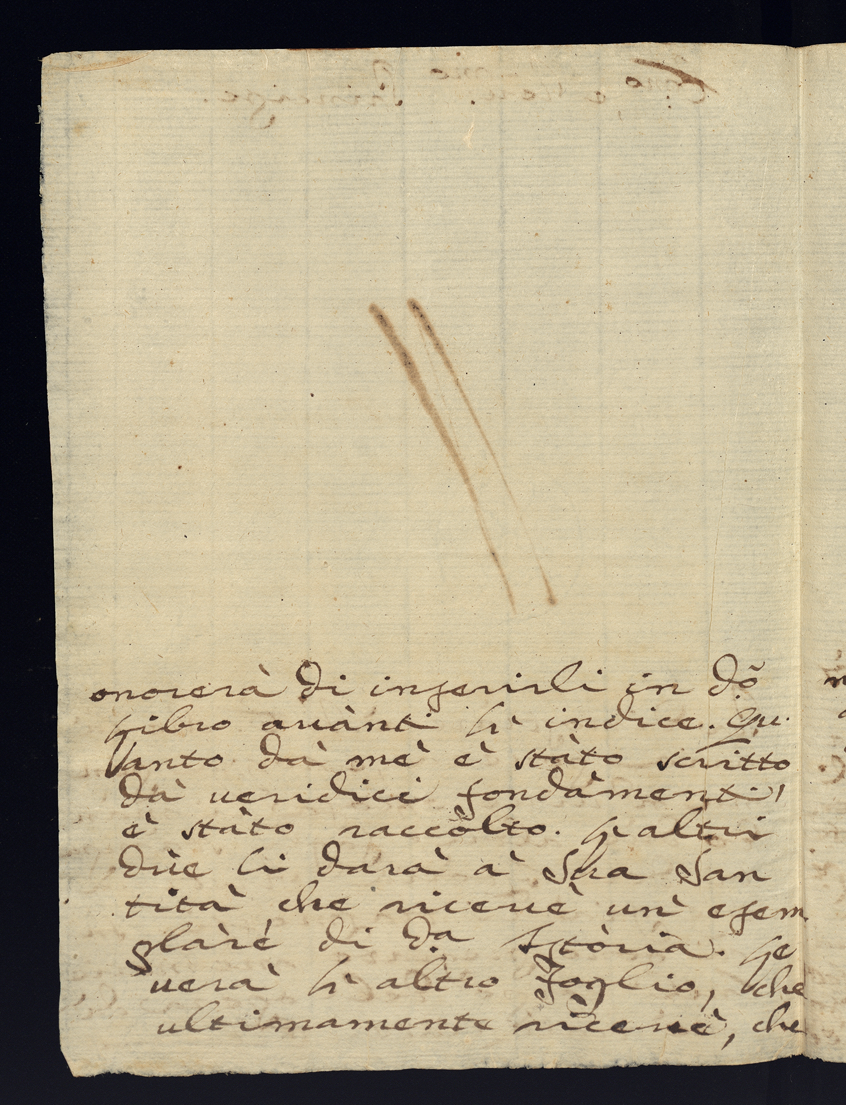 onorerà di inserirli in dõ
libro auànti l'indice. Qu
anto dà mè è stàto scritto
dà ueridici fondàmenti,
è stàto raccòlto. L'altri
dùe li darà à Sua San
tità che riceuè un' esem
plàrè di da Istòria. Le
uerà l'altro foglio, che
ultimamente riceuè, che